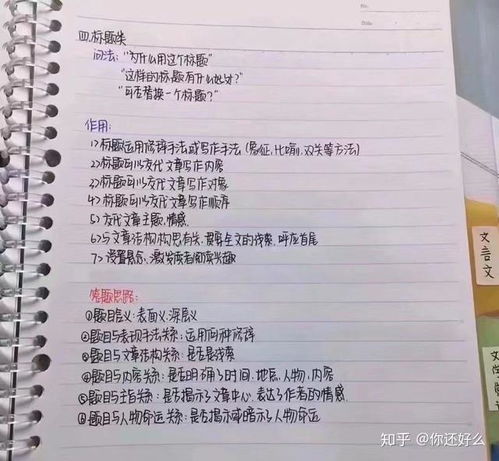 四.标题类
问法:"为什么用这个标题"
"这样的标题有什么妙处?"
"可否替换一个标题?"
作用:
1>标题运用修辞手法或写作手法(象征,比喻,双关等方法)
2>标题可以交代文章写作内容
3>标题可以交代文章写作对象
4>标题可以交代文章写作顺序
5>交代文章主题,情感
6>与文章结构构思有关,是全文的线索,呼应首尾
7>设置悬念,激发读者阅读兴趣
答题思路:
①题目含义:表面义,深层义
②题目与表现手法关系:运用何种修辞
③题目与文章结构关系:是否是线索
④题目与内容关系:是否明确了时间,地点,人物,内容
⑤题目与主旨关系:是否揭示了文章中心,表达了作者的情感
⑥题目与人物命运关系:是否揭示或暗示了人物命运
Date
文言文
知乎 @你还好么